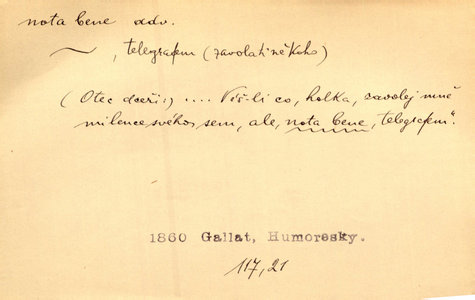 nota bene adv.
~ , telegrafem (zavolati někoho)
(Otec dceři:) .... Víš-li co, holka, zavolej mně
milence svého sem, ale, nota bene, telegrafem".
1860 Gallat, Humoresky.
117,21